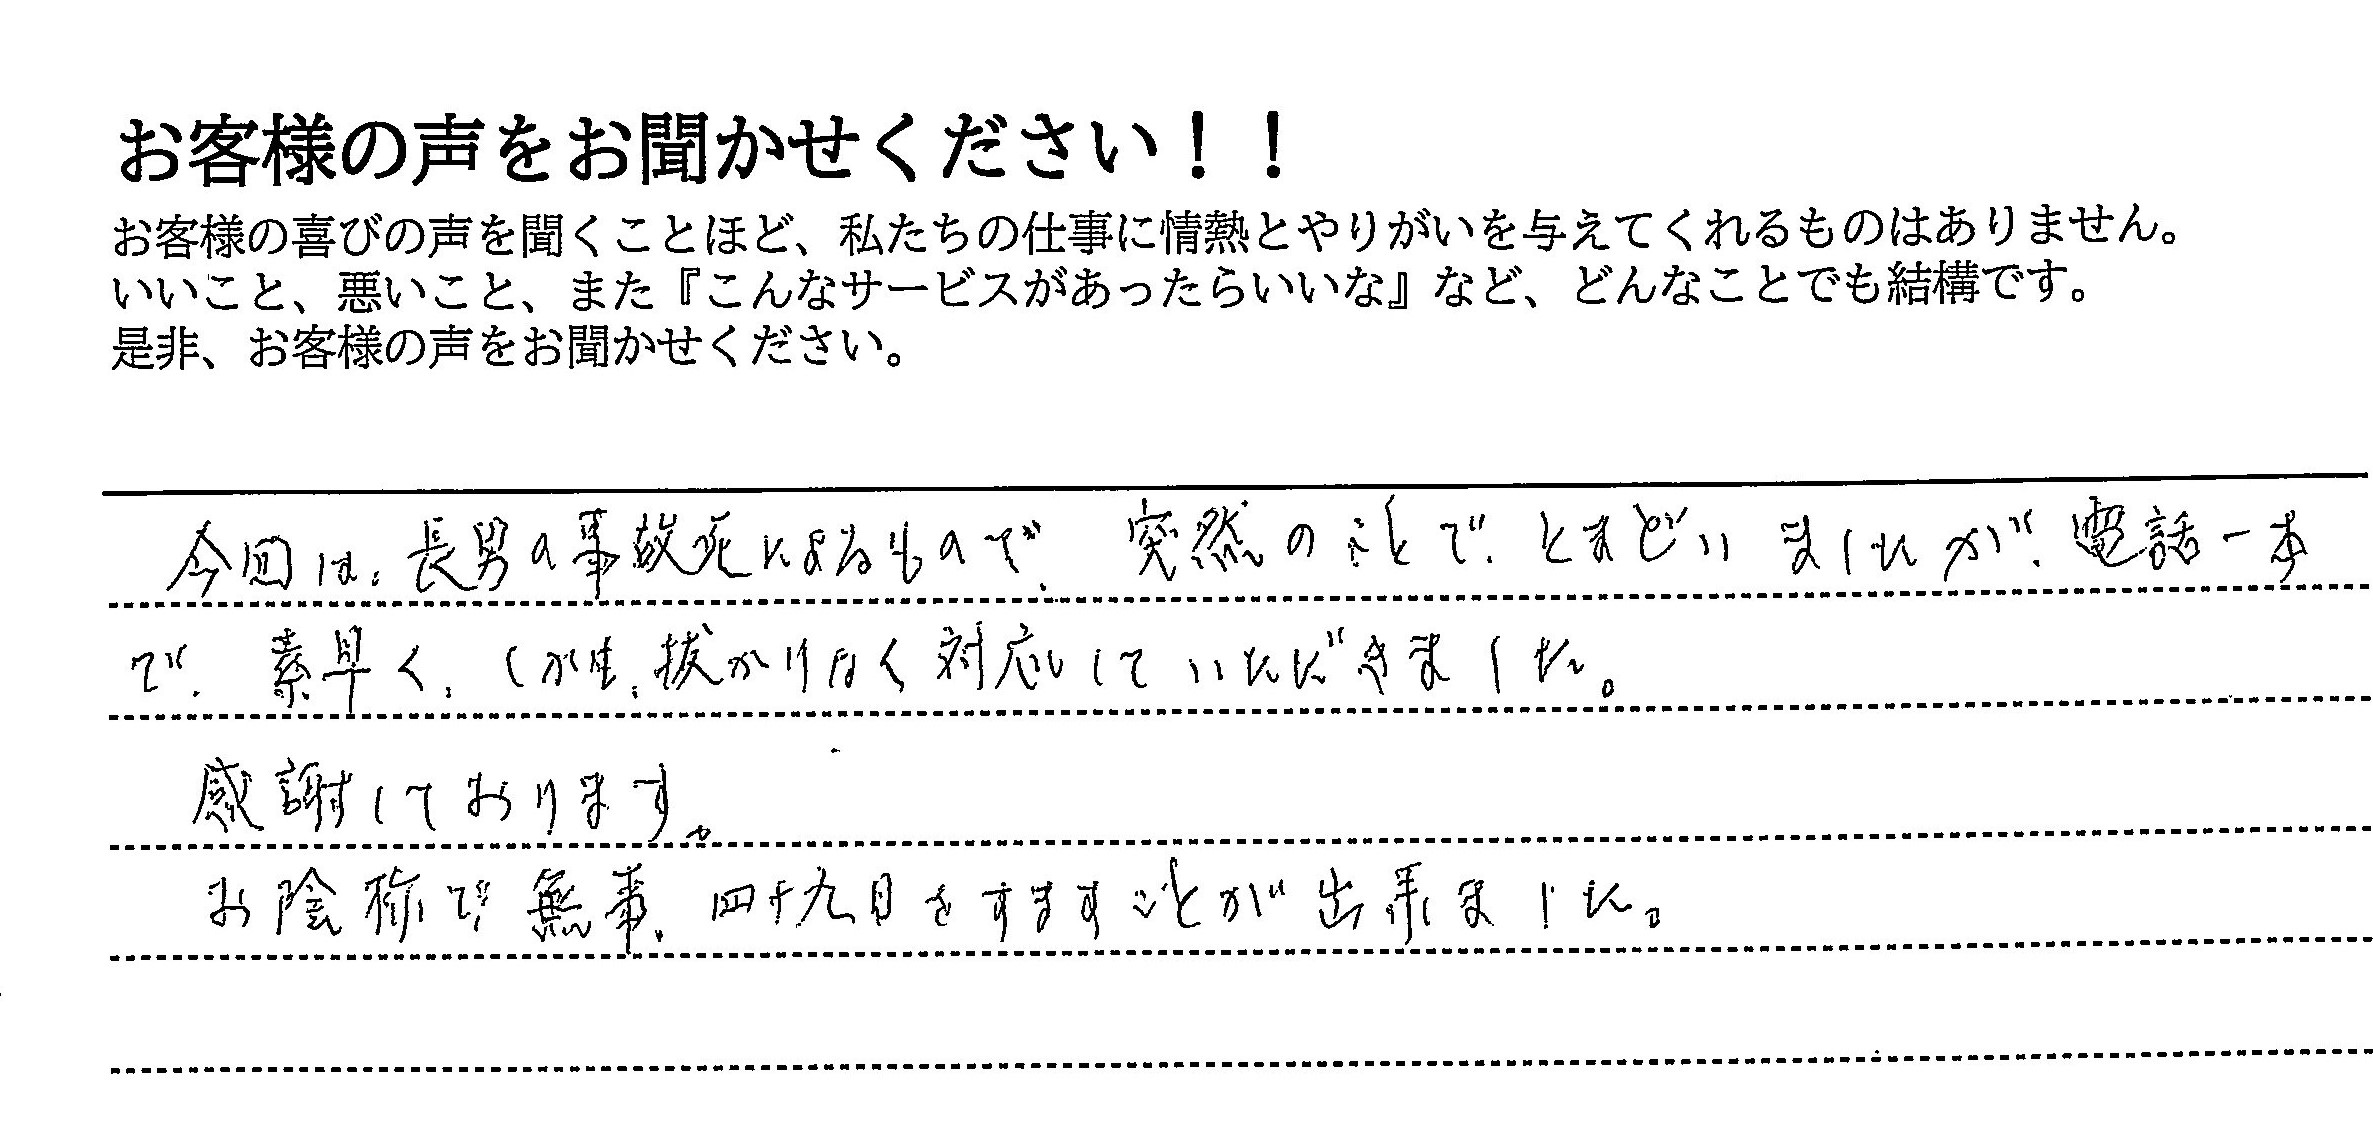 お客様の声をお聞かせください！！
お客様の喜びの声を聞くことほど、私たちの仕事に情熱とやりがいを与えてくれるものはありません。
いいこと、悪いこと、また『こんなサービスがあったらいいな』など、どんなことでも結構です。
是非、お客様の声をお聞かせください。
今回は、長男の事故死によるもので、突然のことで、とまどいましたが、電話一本
で、素早く、しかも、抜かりなく対応していただきました。
感謝しております。
お陰様で無事、四十九日をすますことが出来ました。